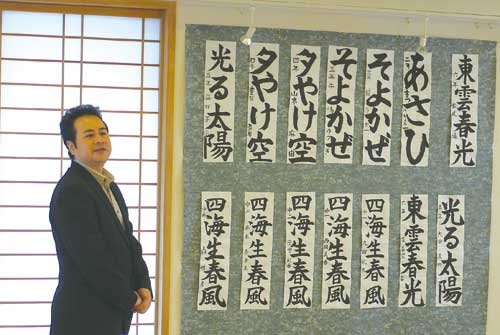 東雲春光
あさひ
そよかぜ
そよかぜ
夕やけ空
夕やけ空
光る太陽
光る太陽
東雲春光
四海生春風
四海生春風
四海生春風
四海生春風
四海生春風